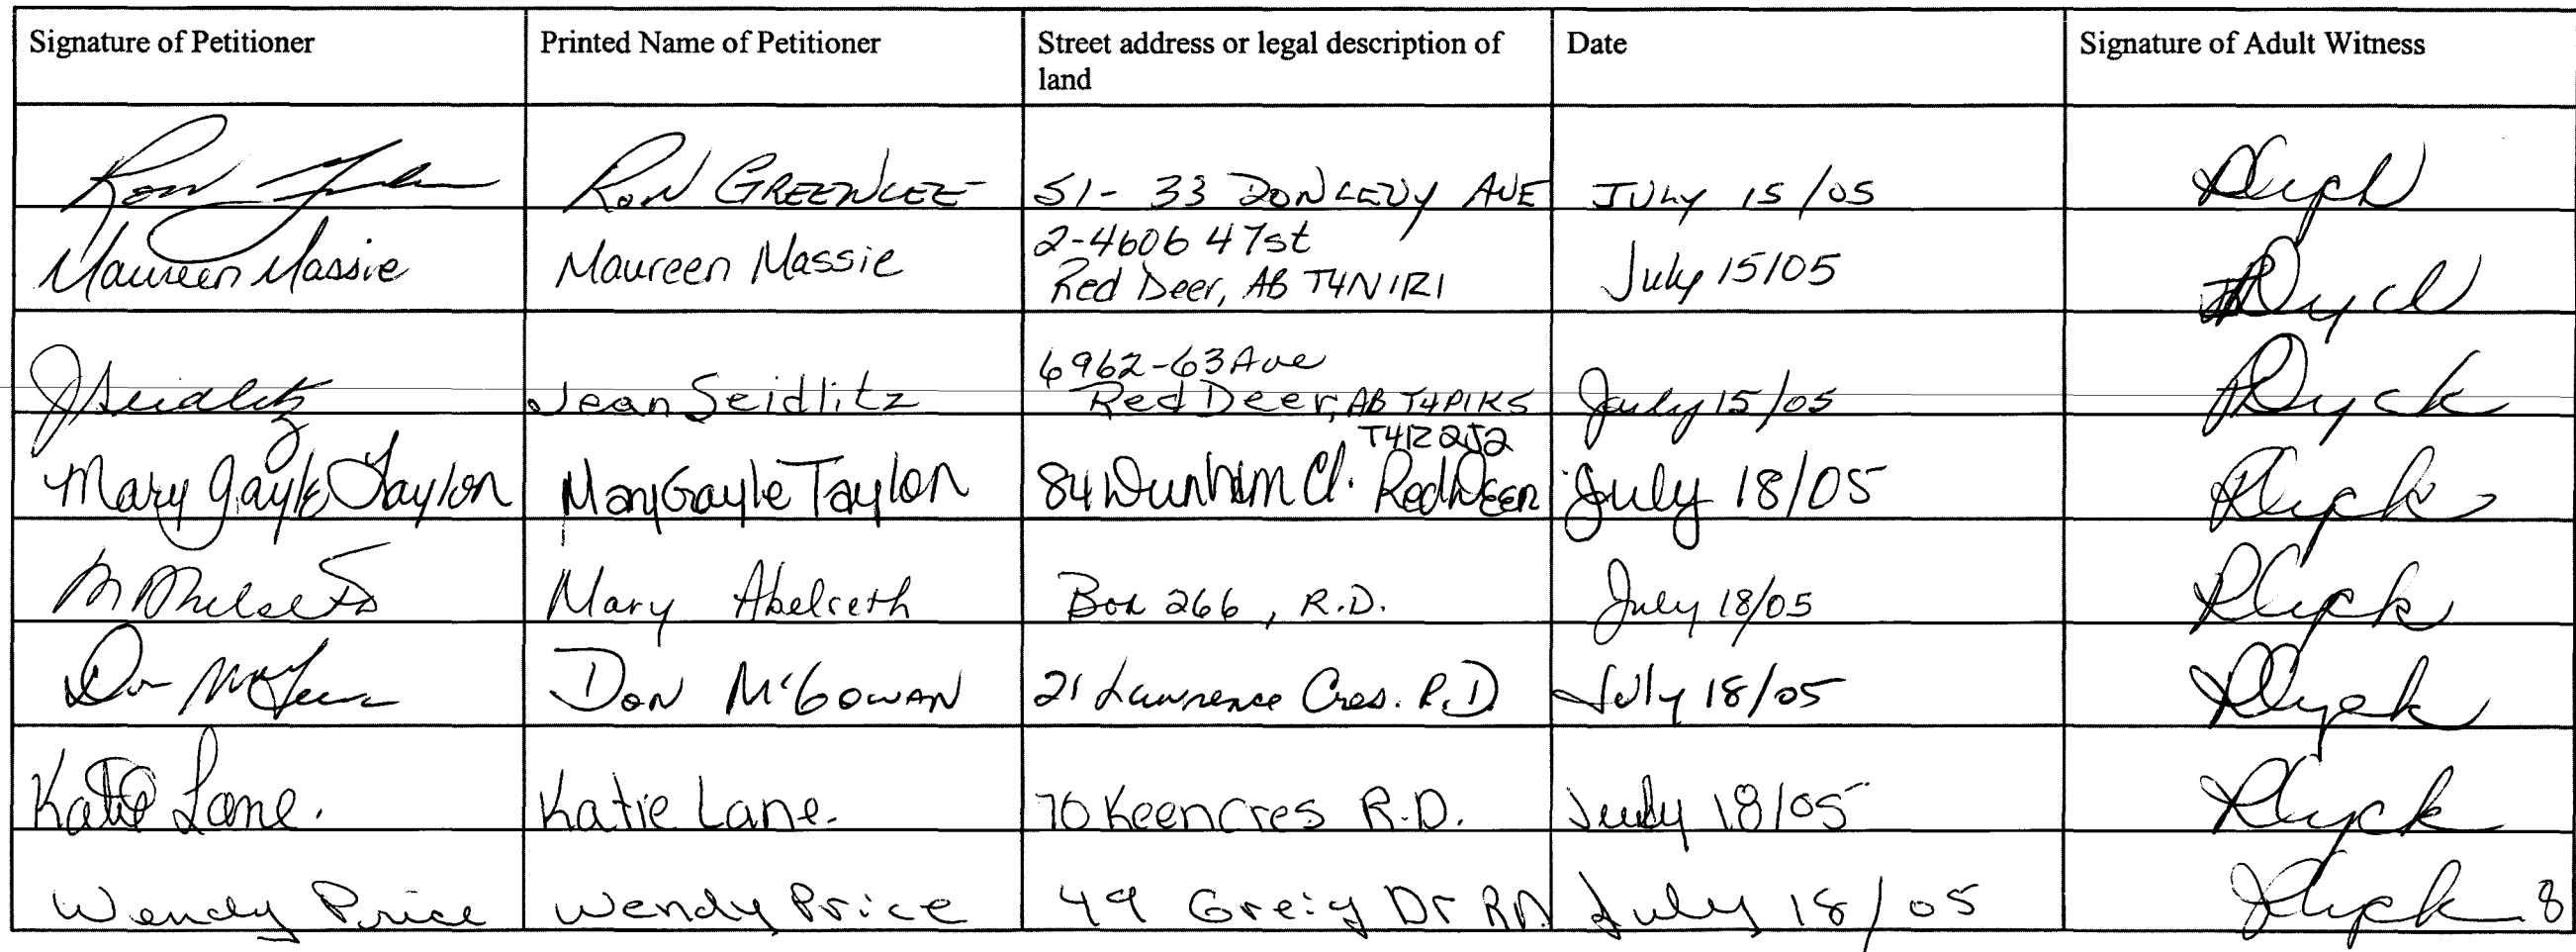 Signature of Petitioner Printed Name of Petitioner Street address or legal description of land Date Signature of Adult Witness
Ron RON GREENLEE 51- 33 DONLEVY AVE JULY 15/05
Maureen Massie Maureen Massie 2-4606 47st
Red Deer, AB T4N1R1 July 15/05 Dyck
JSeidlitz Jean Seidlitz 6962-63Ave
Red Deer, AB T4P1K5 July 15/05 Dyck
T4R 2J2
Mary Gayle Taylor Mary Gayle Taylor 84 Dunham Cl. Red Deer July 18/05 Dyck
Mary Abelseth Box 266, R.D. July 18/05 Dyck
Don McGowan DON McGOWAN 21 Lawrence Cres. R.D July 18/05 Dyck
Katie Lane. Katie Lane. 70 Keen Cres R.D. July 18/05 Dyck
Wendy Price Wendy Price 49 Greig Dr RD. July 18/05 Dyck 8